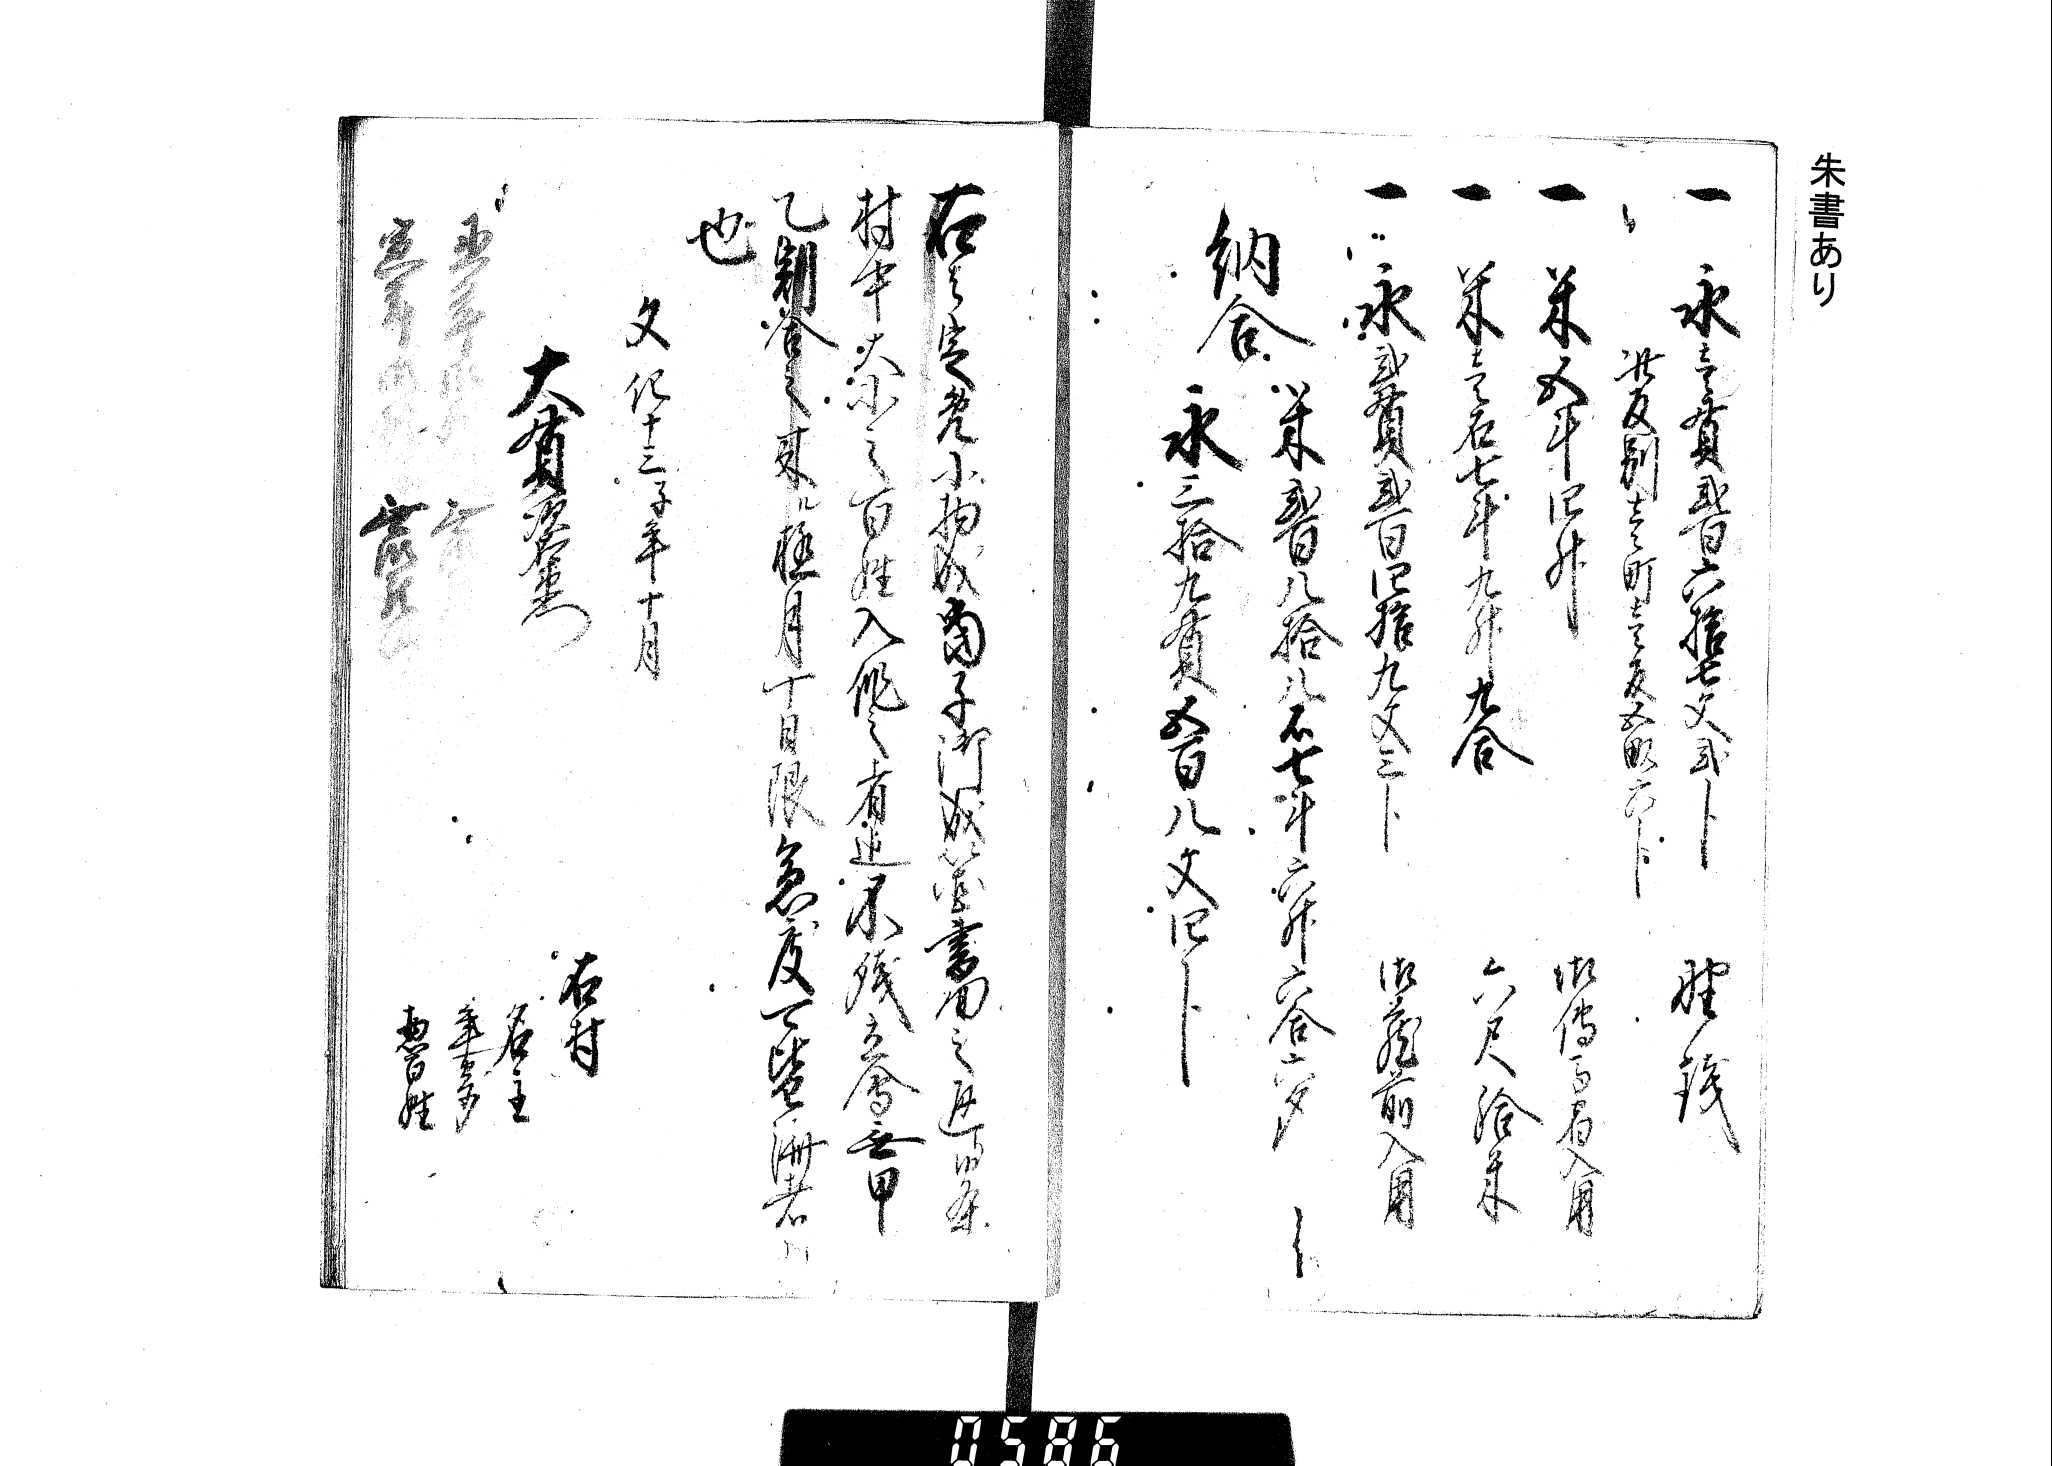 朱書あり
一 永壱貫弐百六拾七文弐分 野銭
此反別壱町壱反五畝六歩
一 米五斗四升 御伝馬宿入用
一 米壱石七斗九升九合 六尺給米
一 永弐貫弐百四拾九文三分 御蔵前入用
納合 米弐百八拾八石七斗六升六合六夕
永三拾九貫五百八文四分
右者定免小物成当子御成箇書面之通候条
村中大小之百姓入作之者迄不残立会無甲
乙割合之来ル極月十日限急度可皆済者
也
文化十三子年十月
大貫次右衛門
右村
名主
年寄
惣百姓
0586